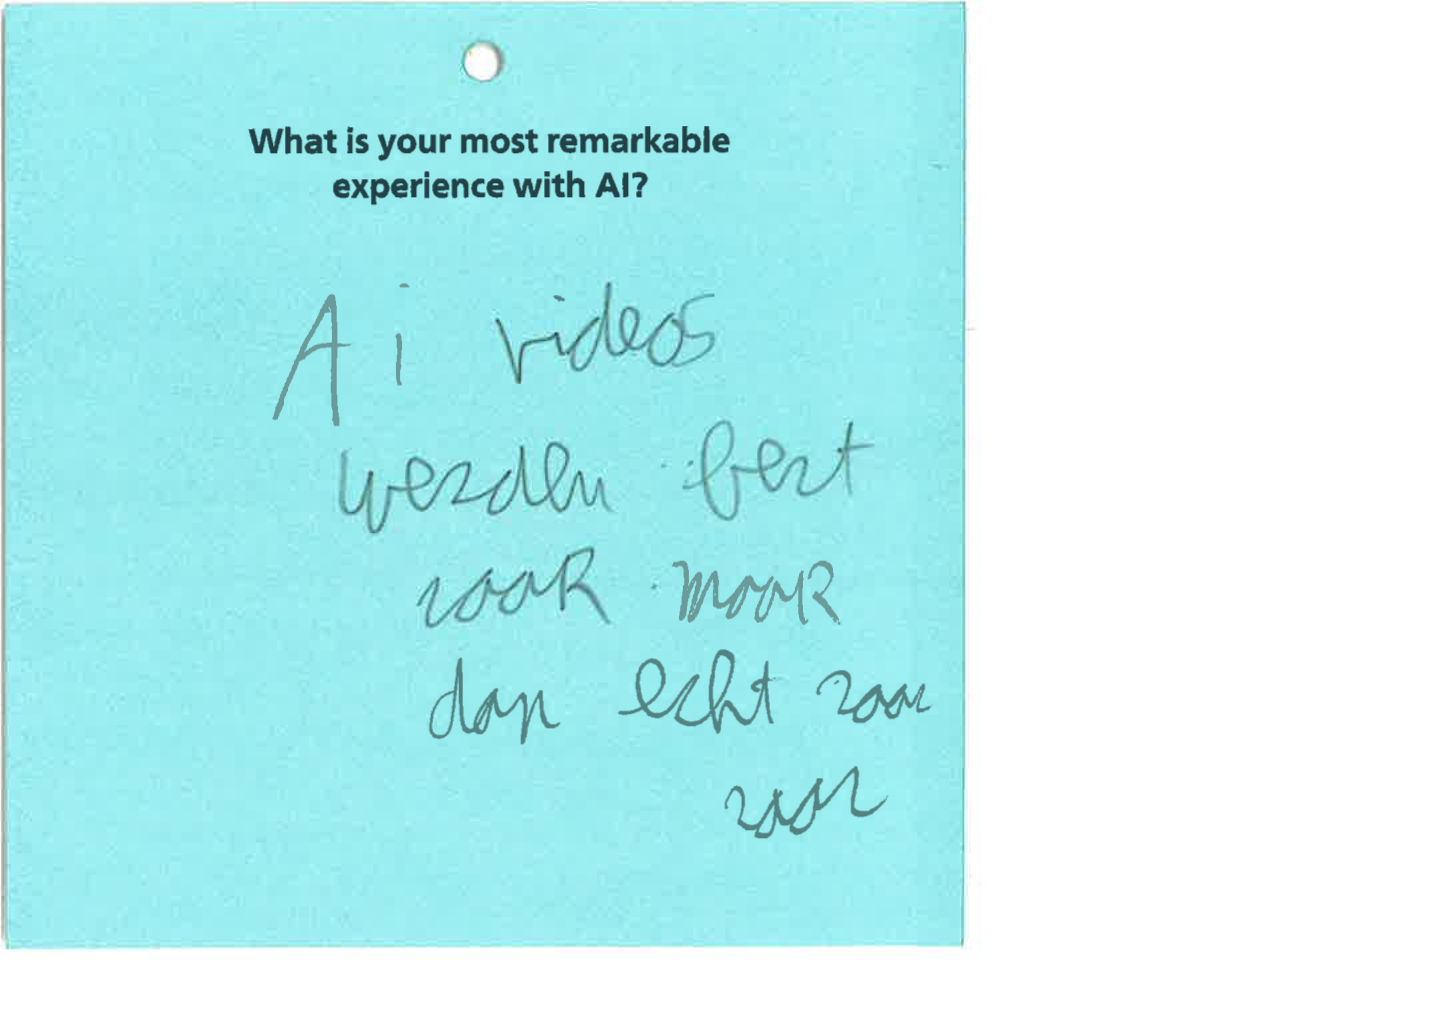 What is your most remarkable
experience with AI?
Ai videos
werden best
raar maar
dan echt raar
raar